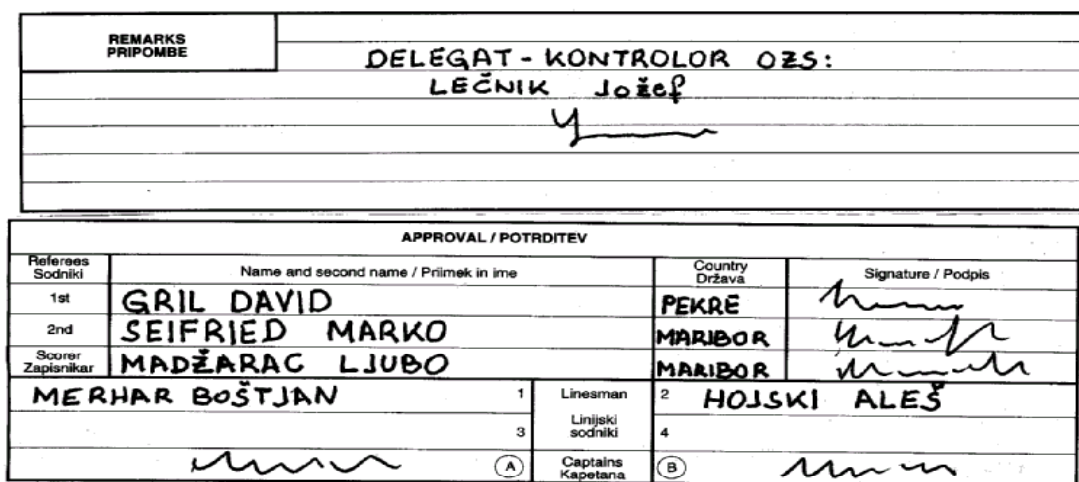 REMARKS
PRIPOMBE
DELEGAT - KONTROLOR OZS:
LEČNIK Jožef
APPROVAL / POTRDITEV
Referees
Sodniki
Name and second name / Priimek in ime
Country
Država
Signature / Podpis
1st GRIL DAVID PEKRE
2nd SEIFRIED MARKO MARIBOR
Scorer
Zapisnikar
MADŽARAC LJUBO MARIBOR
MERHAR BOŠTJAN 1 Linesman 2 HOJSKI ALEŠ
3 Linijski
sodniki 4
A Captains
Kapetana B